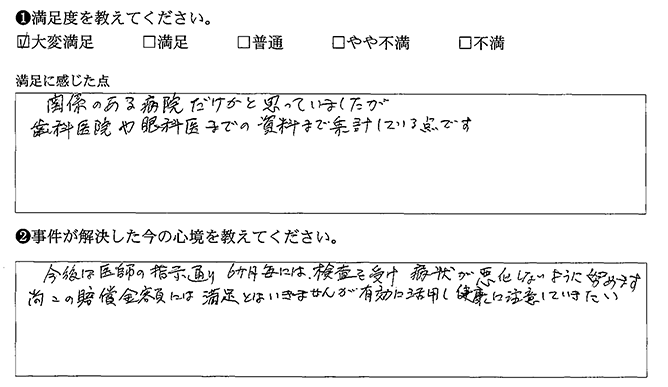 ❶満足度を教えてください。
☑大変満足 □満足 □普通 □やや不満 □不満
満足に感じた点
関係のある病院だけかと思っていましたが
歯科医院や眼科医までの資料まで集計している点です
❷事件が解決した今の心境を教えてください。
今後は医師の指示通り6ケ月毎には、検査を受け 病状が悪化しないように努めます
尚この賠償金額には満足とはいきませんが有効に活用し健康に注意していきたい